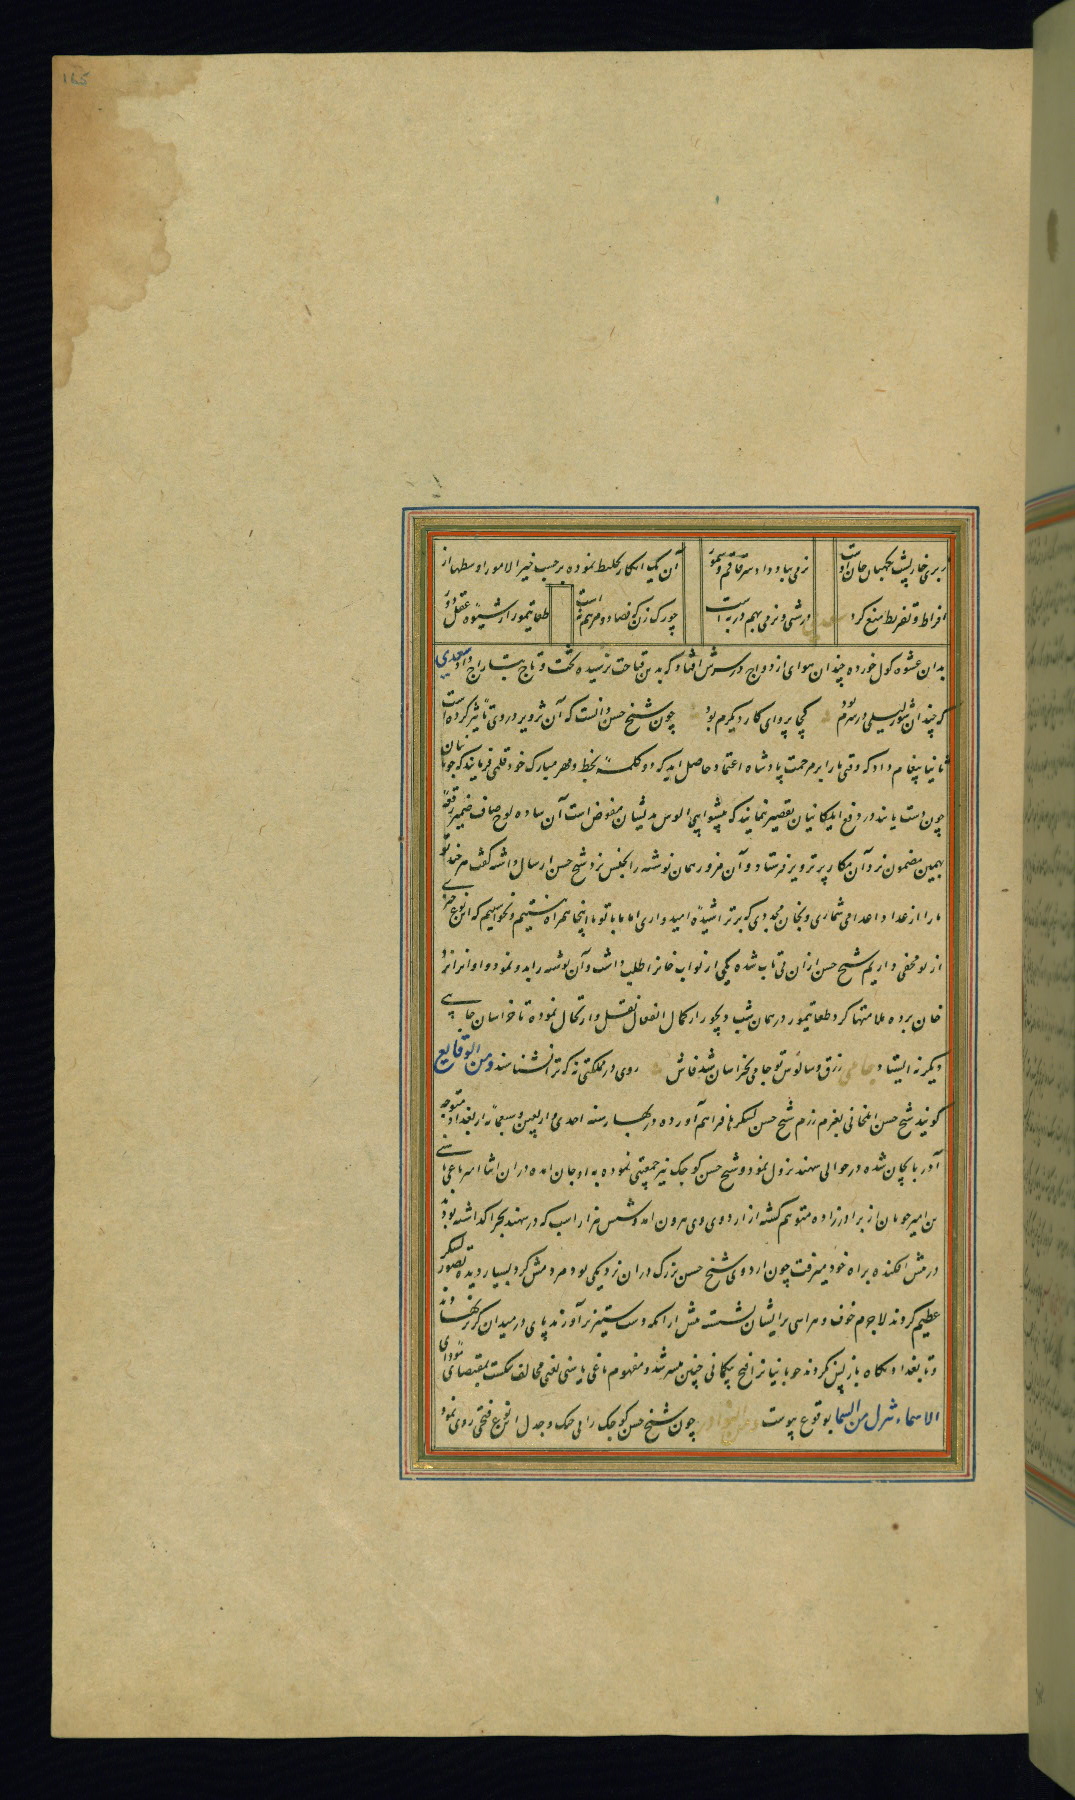 165
بر سری خار پشت نگهبان جان اوست نرمی بباد داد سر قاقم و سمور آن یک انکار تخلیط نموده بر حسب خیر الامور اوسطها از
افراط و تفریط منع کرد سعدی درشتی و نرمی بهم در به است چو رگ زن که فصاد و مرهم نه است طغاتیمور از شیوه عقل دور
بدان عشوه کول خورده چندان هوای ازدواج در سرش افتاد که بدین قباحت نرسیده تخت و تاج بتاراج داد سعدی
که چندان شور لیلی در سرم بود کجا پروای کار دیگرم بود چون شیخ حسن دانست که آن تزویر در وی تاثیر کرده است
ثانیا پیغام داد که وقتی ما را بر مرحمت پادشاه اعتماد حاصل آید که دو کلمه بخط و مهر مبارک خود قلمی فرمایند که چوبانیان
چون است یابند در دفع ایلکانیان تقصیر نمایند که پیشوایی الوس بدیشان مفوض است آن ساده لوح صاف ضمیر رقعه
بهمین مضمون نزد آن مکار پر تزویر فرستاد و آن مزور همان نوشته را بجنس نزد شیخ حسن ارسال داشته گفت هر چند تو
ما را از عداد اعدا می شماری و بخان مجددی که بر تراشیده امیدواری اما ما با تو با اینجا همراه نیستیم و نخواهیم که این نوع چیزی
از تو مخفی داریم شیخ حسن از آن بی تاب شده یکی از نواب خان را طلب داشت و آن نوشته را بدو نمود و او آنرا نزد
خان برده ملامتها کرد طغاتیمور در همان شب دیجور از کمال انفعال نقل و ارتحال نموده تا خراسان جایی
دیگر نه ایستاد جامی زرق و سالوس تو جامی بخراسان شد فاش روی در مملکتی نه که ترا نشناسند و من الوقایع
گویند شیخ حسن ایلخانی بعزم رزم شیخ حسن لشکرها فراهم آورده در بهار سنه احدی و اربعین و سبعمائه از بغداد متوجه
آذربایجان شده در حوالی سهند نزول نمود و شیخ حسن کوچک نیز جمعیتی نموده به اوجان آمد در آن اثنا امیر یاغی باستی
بن امیر چوبان از برادرزاده متوهم گشته از اردوی وی بیرون آمد و شش هزار اسب که در سهند بچرا گذاشته بودند
در پیش افکنده براه خود میرفت چون اردوی شیخ حسن بزرگ در آن نزدیکی بود مردمش گرد بسیار دیده تصور لشکر
عظیم کردند لاجرم خوف و هراسی بر ایشان نشسته پیش از آنکه دست ستیز برآورند پای در میدان گریز نهادند
و تا بغداد نگاه باز پس نکردند چوبانیان را فتح یکانی چنین میسر شد و مفهوم یاغی باستی یعنی مخالف شکست بمقتضای مودای
الاسماء تنزل من السما بوقوع پیوست و من النوادر چون شیخ حسن کوچک را بی جنگ و جدل این نوع فتحی روی نمود